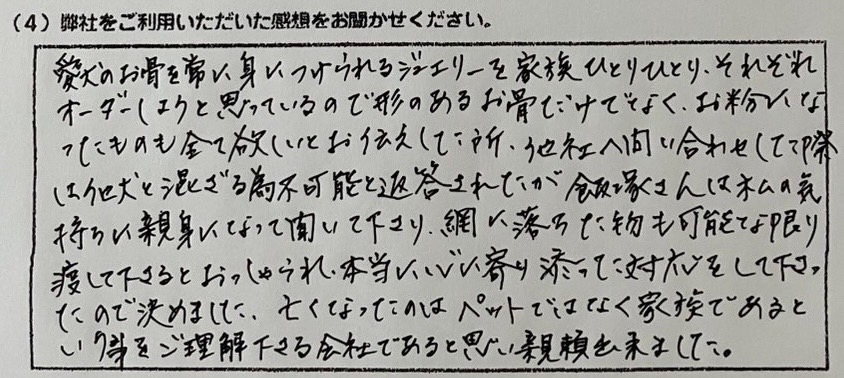 (4) 弊社をご利用いただいた感想をお聞かせください。
愛犬のお骨を常に身につけられるジュエリーを家族ひとりひとり、それぞれ
オーダーしようと思っているので形のあるお骨だけでなく、お粉にな
ったものも全て欲しいとお伝えした所、他社へ問い合わせした際
は他犬と混ざる為不可能と返答されたが飯塚さんは私の気
持ちに親身になって聞いて下さり、網に落ちた物も可能な限り
渡して下さるとおっしゃられ、本当に心に寄り添った対応をして下さっ
たので決めました。亡くなったのはペットではなく家族であると
いう事をご理解下さる会社であると思い親頼出来ました。